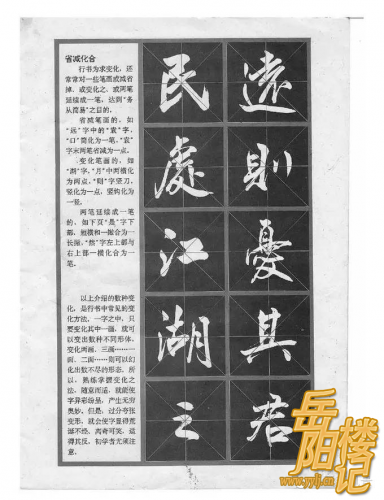 省减化合
行书为求变化，还
常常对一些笔画或减省
掉，或变化之，或两笔
延续成一笔，达到“务
从简易”之目的。
省减笔画的，如
“远”字中的“袁”字，
“口”简化为一笔，“袁”
字末两笔省减为一点。
变化笔画的，如
“湖”字，“月”中两横化
为两点，“则”字竖刀，
竖化为一点，竖钩化为
一竖。
两笔延续成一笔
的，如下页“是”字下
部，短横和一撇合为一
长撇，“然”字左上部与
右上部一横化合为一
笔。
以上介绍的数种变
化，是行书中常见的变
化方法，一字之中，只
要变化其中一画，就可
以变出数种不同形体，
变化两画，三画……一
面、二面……则可以幻
化出数不尽的形态，所
以，熟练掌握变化之
法，随意而适，就能使
字异彩纷呈，产生无穷
奥妙，但是，过分夸张
变形，就会使字显得荒
诞不经，离奇可笑，适
得其反，初学者尤须注
意。
遠則憂其君
民處江湖之
岳阳楼记
www.yylj.cn